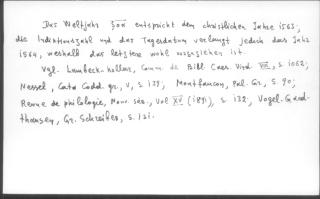 Das Weltjahr ζοα entspricht dem christlichen Jahre 1563,
die Indiktionszahl und das Tagesdatum verlangt jedoch das Jahr
1564, weshalb das letztere wohl vorzuziehen ist.
Vgl. Lambeck-Kollar, Comm. de Bibl. Caes. Vind. VIII, S. 1062;
Nessel, Cata Codd. gr., V, S. 139, Montfaucon, Pal. Gr., S. 90;
Revue de philologie, Nouv. sér., Vol XV (1891), S. 132, Vogel-Gard-
thausen, Gr. Schreiber, S. 121.